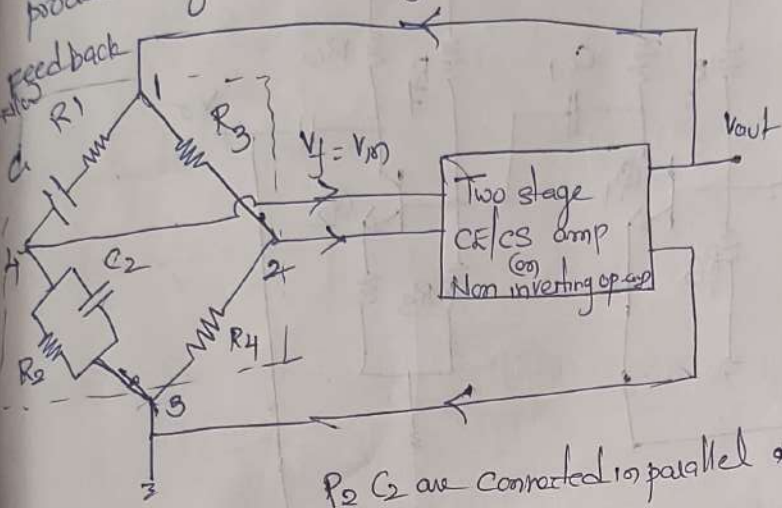 Feedback
1
R1
R3
C1
Vf = Vin
Vout
Two stage
CE/CS amp
(or)
Non inverting op-amp
4
C2
2
R2
R4
3
3
R2 C2 are connected in parallel